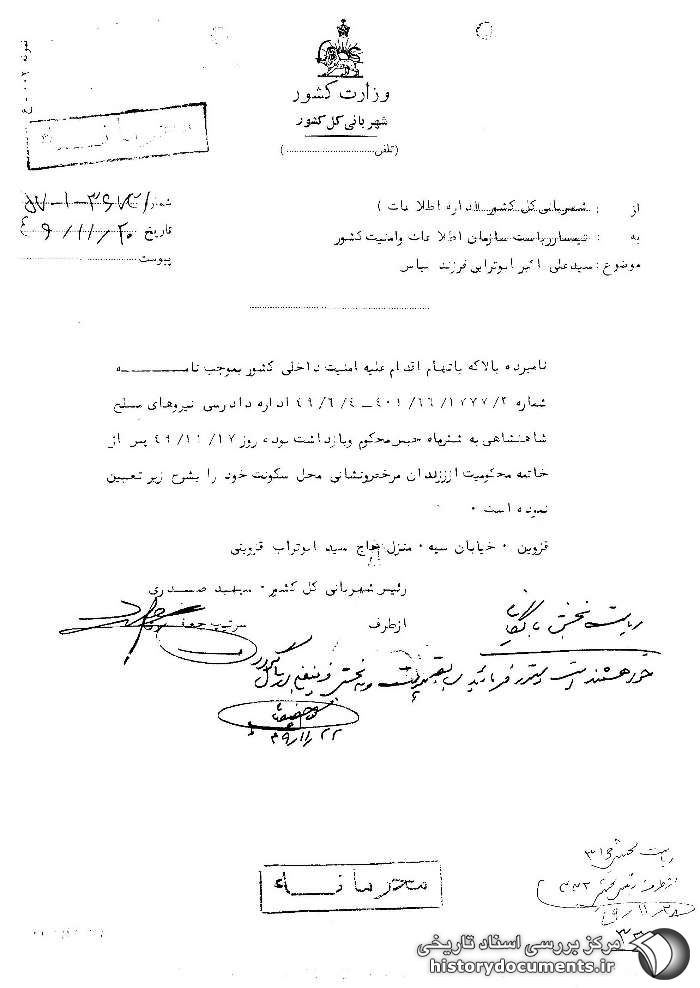 وزارت کشور
شهربانی کل کشور
(تلفن....................)
محرمانه
شماره
تاریخ ۴۹/۱۱/۲۰
پیوست
از : شهربانی کل کشور (اداره اطلاعات)
به : تیمسار ریاست سازمان اطلاعات و امنیت کشور
موضوع : سید علی اکبر ابوترابی فرزند عباس
نامبرده بالا که باتهام اقدام علیه امنیت داخلی کشور بموجب نامه
شماره ۴۰۱/۶۶/۱۷۷۷/۲ ـ ۴۹/۶/۴ اداره دادرسی نیروهای مسلح
شاهنشاهی به ششماه حبس محکوم وبازداشت بوده روز ۴۹/۱۱/۱۷ پس از
خاتمه محکومیت اززندان مرخص ونشانی محل سکونت خود را بشرح زیر تعیین
نموده است ۰
قزوین ۰ خیابان سپه ۰ منزل حاج سید ابوتراب قزوینی
رئیس شهربانی کل کشور ۰ سپهبد صمدی
ازطرف سرتیپ
ریاست بخش بایگانی
خواهشمند است دستور فرمائید
۴۹/۱۱/۲۲
محرمانه
ریاست بخش ۳۱۶
مرکز بررسی اسناد تاریخی
historydocuments.ir